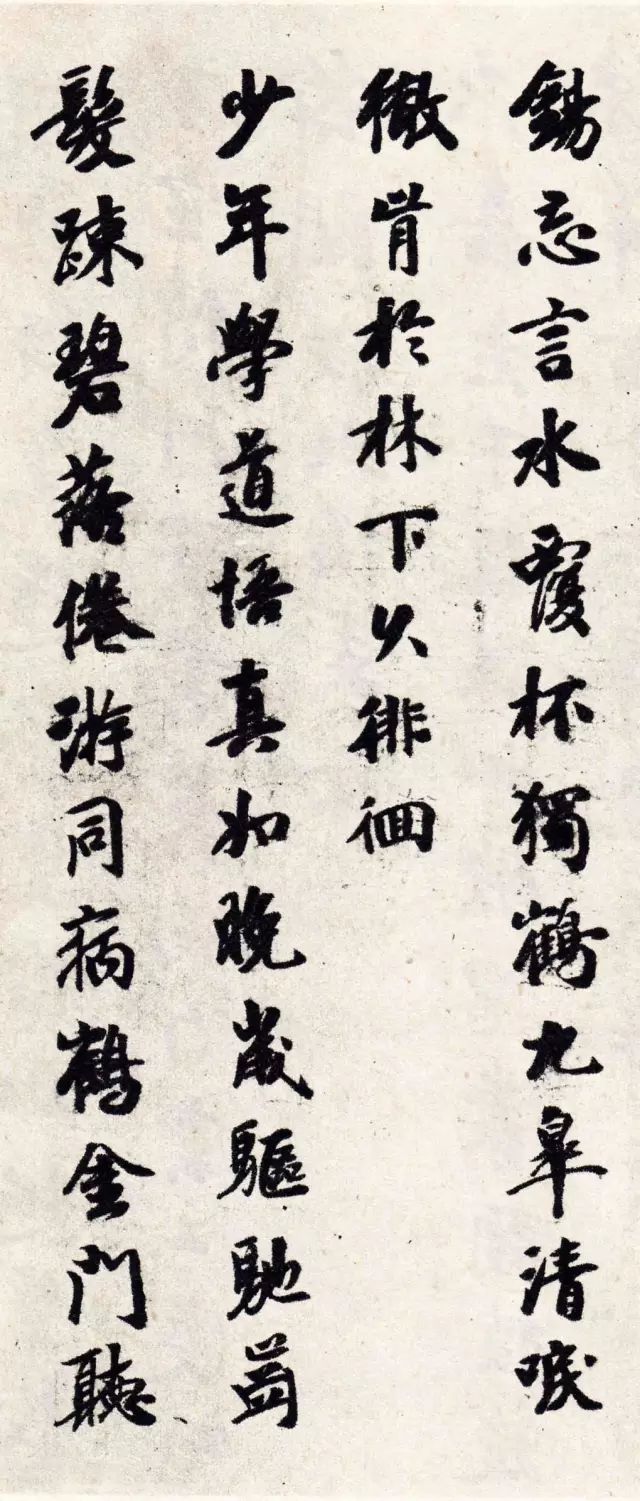 錫忘言水覆杯獨鶴九皋清唳
徹肯於林下久徘徊
少年學道悟真如晚歲驅馳茵
髮疎碧落倦游同病鶴金門聽